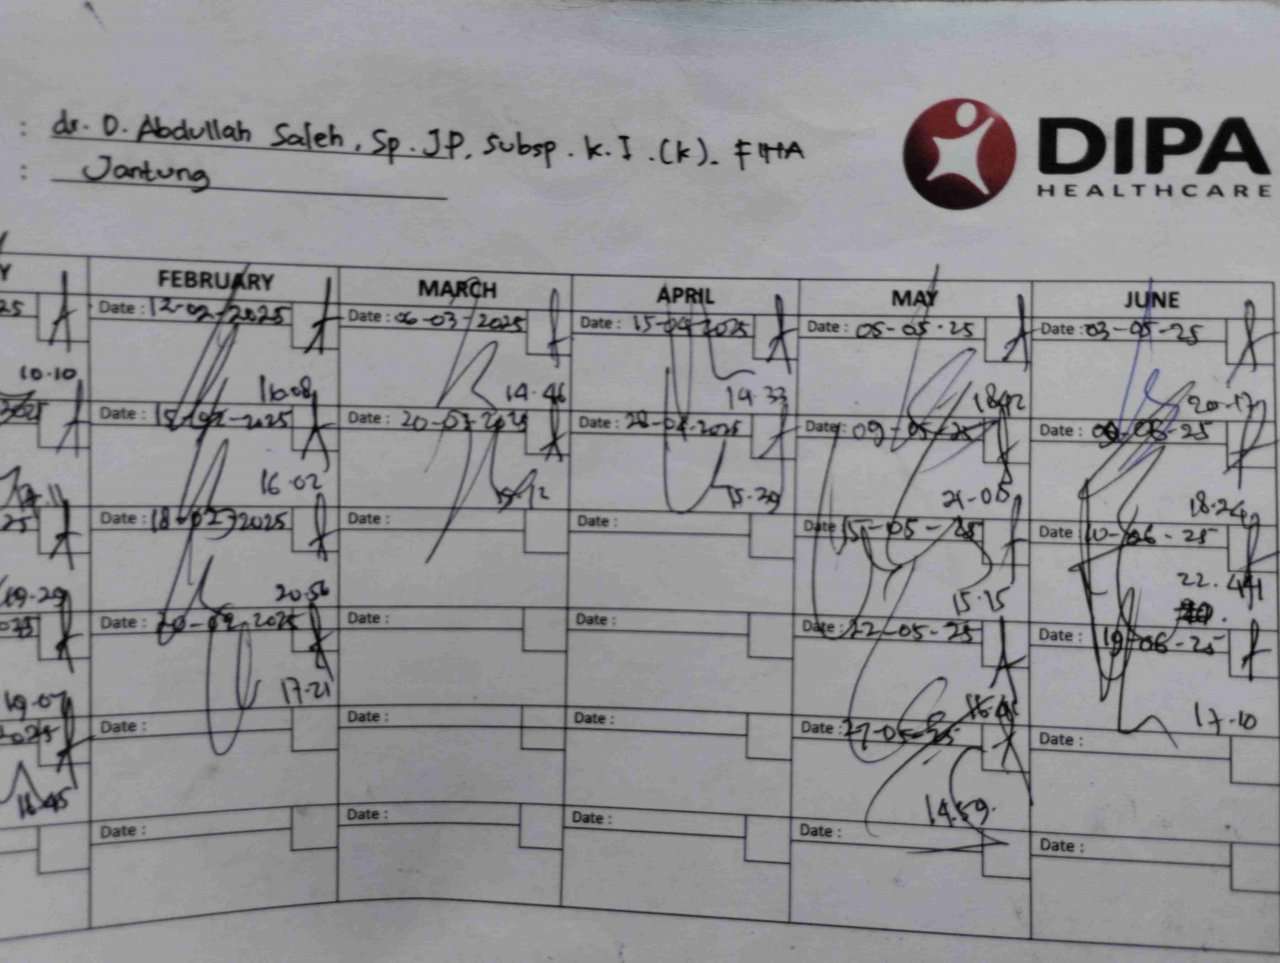 : dr. D. Abdullah Saleh, Sp. JP, Subsp. K.I.(K). FIHA
DIPA
HEALTHCARE
: Jantung
Y FEBRUARY MARCH APRIL MAY JUNE
25 Date : 12-02-2025 Date : 06-03-2025 Date : 15-04-2025 Date : 05-05-25 Date : 03-05-25
10.10 16.08 14.46 14.33 20.17
2025 Date : 18-02-2025 Date : 20-03-2025 Date : 28-04-2025 Date : 09-05-25 Date : 09-06-25
16.02 15.39 21.05 18.24
25 Date : 18-02-2025 Date : Date : Date : 15-05-25 Date : 10-06-25
19.29 20.56 15.15 22.44
2025 Date : 20-02-2025 Date : Date : Date : 22-05-25 Date : 19-06-25
19.07 17.21 17.10
2025 Date : Date : Date : Date : 27-05-25 Date :
16.45 14.59
Date : Date : Date : Date : Date :